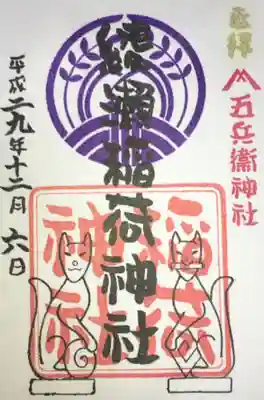 正拝
五兵衛神社
綾瀬稲荷神社
平成二九年十二月六日
稲荷
神社